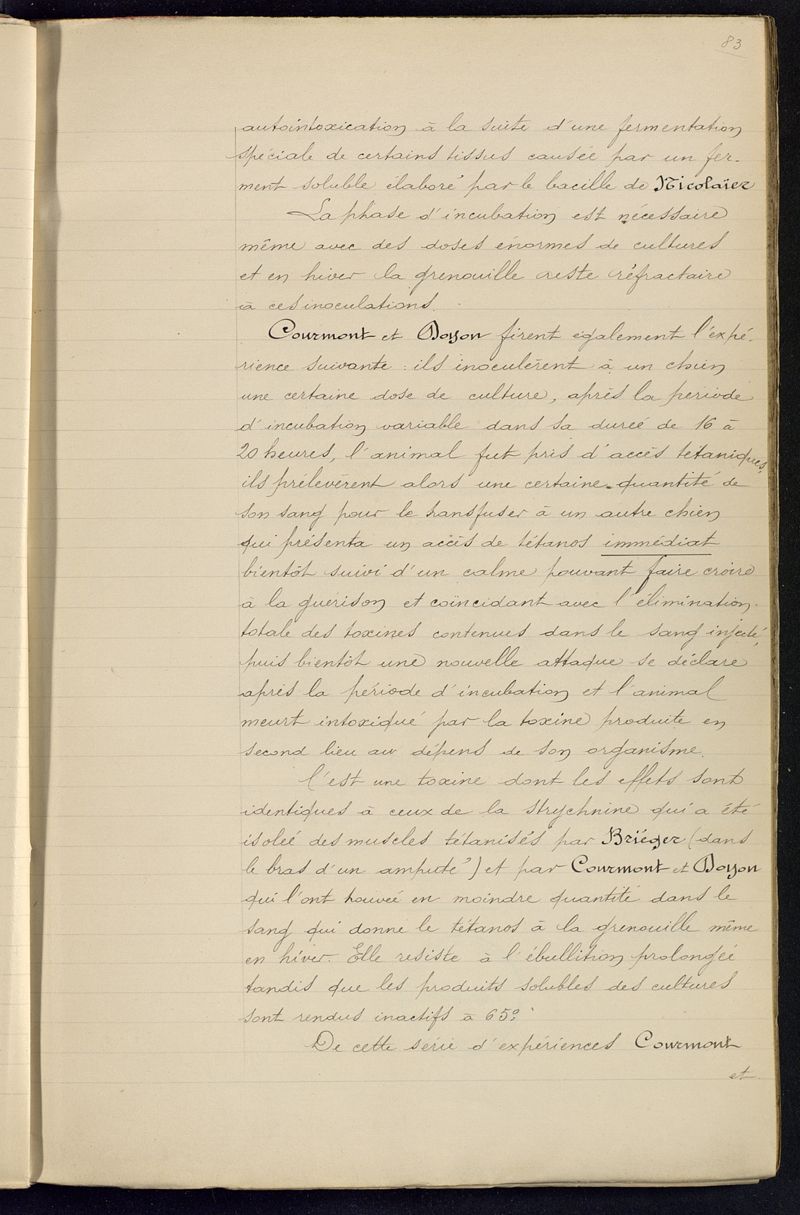 83
autointoxication à la suite d'une fermentation
spéciale de certains tissus causée par un fer-
ment soluble élaboré par le bacille de Nicolaïer
La phase d'incubation est nécessaire
même avec des doses énormes de cultures
et en hiver la grenouille reste réfractaire
à ces inoculations.
Courmont et Doyon firent également l'expé-
rience suivante : ils inoculèrent à un chien
une certaine dose de culture, après la période
d'incubation variable dans sa durée de 16 à
20 heures, l'animal fut pris d'accès tétaniques,
ils prélevèrent alors une certaine quantité de
son sang pour le transfuser à un autre chien
qui présenta un accès de tétanos immédiat
bientôt suivi d'un calme pouvant faire croire
à la guérison et coïncidant avec l'élimination
totale des toxines contenues dans le sang injecté,
puis bientôt une nouvelle attaque se déclare
après la période d'incubation et l'animal
meurt intoxiqué par la toxine produite en
second lieu au dépens de son organisme.
C'est une toxine dont les effets sont
identiques à ceux de la strychnine qui a été
isolée des muscles tétanisés par Briéger (dans
le bras d'un amputé) et par Courmont et Doyon
qui l'ont trouvée en moindre quantité dans le
sang qui donne le tétanos à la grenouille même
en hiver. Elle resiste à l'ébullition prolongée
tandis que les produits solubles des cultures
sont rendus inactifs à 65°.
De cette série d'expériences Courmont
et